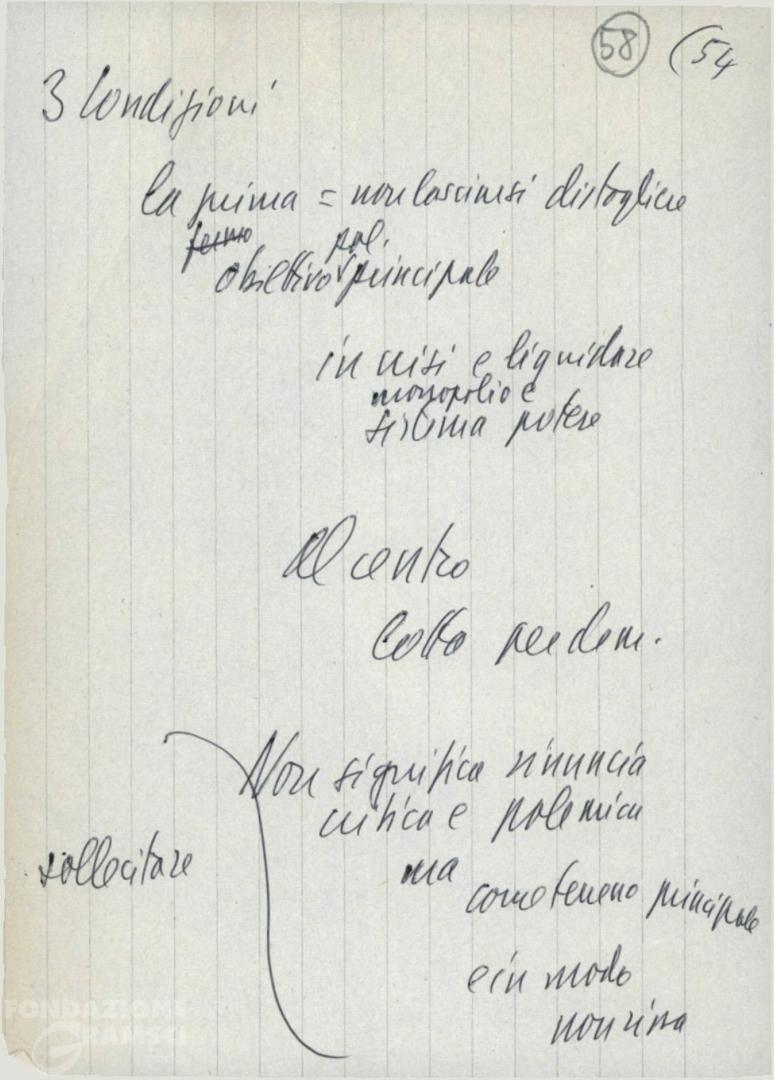 58 (54
3 Condizioni
la prima = non lasciarsi distogliere
fermo pol.
obiettivo principale
in crisi e liquidare
monopolio e
sistema potere
Al centro
Lotta per dem.
Non significa rinuncia
critica e polemica
sollecitare
ma
come terreno principale
e in modo
non rissa
FONDAZIONE
GRAMSCI